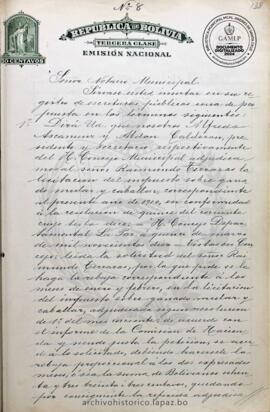 Nº 8
138
REPÚBLICA DE BOLIVIA
TERCERA CLASE
EMISIÓN NACIONAL
CENTAVOS
GAMLP
DOCUMENTO
DIGITALIZADO
2024
Señor Notario Municipal.
Sírvase usted insertar en su re-
gistro de escrituras públicas una de pro-
puesta en los términos siguientes:
1ª Dirá Ud. que nosotros Alfredo
Ascarrunz y Calderon, pre-
sidente y Secretario, respectivamente
del H. Concejo Municipal adjudica-
mos al señor Raimundo Terrazas la
licitacion del impuesto sobre gana-
do mular y caballar, correspondiente
al presente año de 1910, en conformidad
á la resolucion de quince del corriente
cuyo texto dice: H. Concejo Depar-
tamental La Paz, á quince de marzo
de mil novecientos diez - Vistos en Con-
cejo, leida la solicitud del señor Rai-
mundo Terrazas, por la que pide se le
haga la rebaja correspondiente á los
meses de enero y febrero, en la licitacion
del impuesto sobre ganado mular y
caballar, adjudicada segun resolucion
de 1º del mes de acuerdo con
el informe de la Comision de Hacien-
da y siendo justa la peticion, se accè-
de á lo solicitado, debiendo hacerse la
rebaja proporcional á los dos expresados
meses, ó sea la suma de Bolivianos ochen-
ta y tres treinta y tres centavos, quedando
por consiguiente la referida adjudica
archivohistorico.lapaz.bo